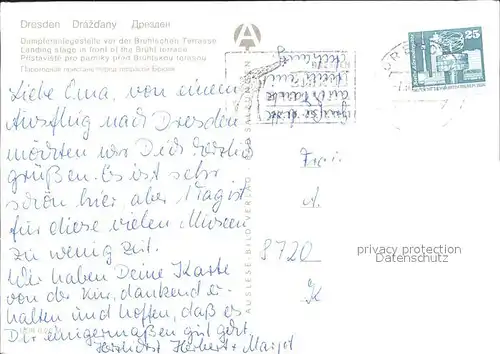 Dresden Drážďany Дрезден
Dampferanlegestelle vor der Brühlschen Terrasse
Landing stage in front of the Brühl terrace
Přístaviště pro parníky před Brühlskou terasou
Liebe Oma, von einem
Ausflug nach Dresden
möchten wir Dich herzlich
grüßen. Es ist sehr
schön hier aber Tag ist
für diese vielen Museen
zu wenig Zeit.
Wir haben Deine Karte
von der Kur, dankend er-
halten und hoffen, daß es
Dir einigermaßen gut geht.
Herzlichst Herbert + Margot
AUSLESE-BILD-VERLAG · BAD SALZUNGEN
A
25
DDR
Frau
A.
8720
K
privacy protection
Datenschutz